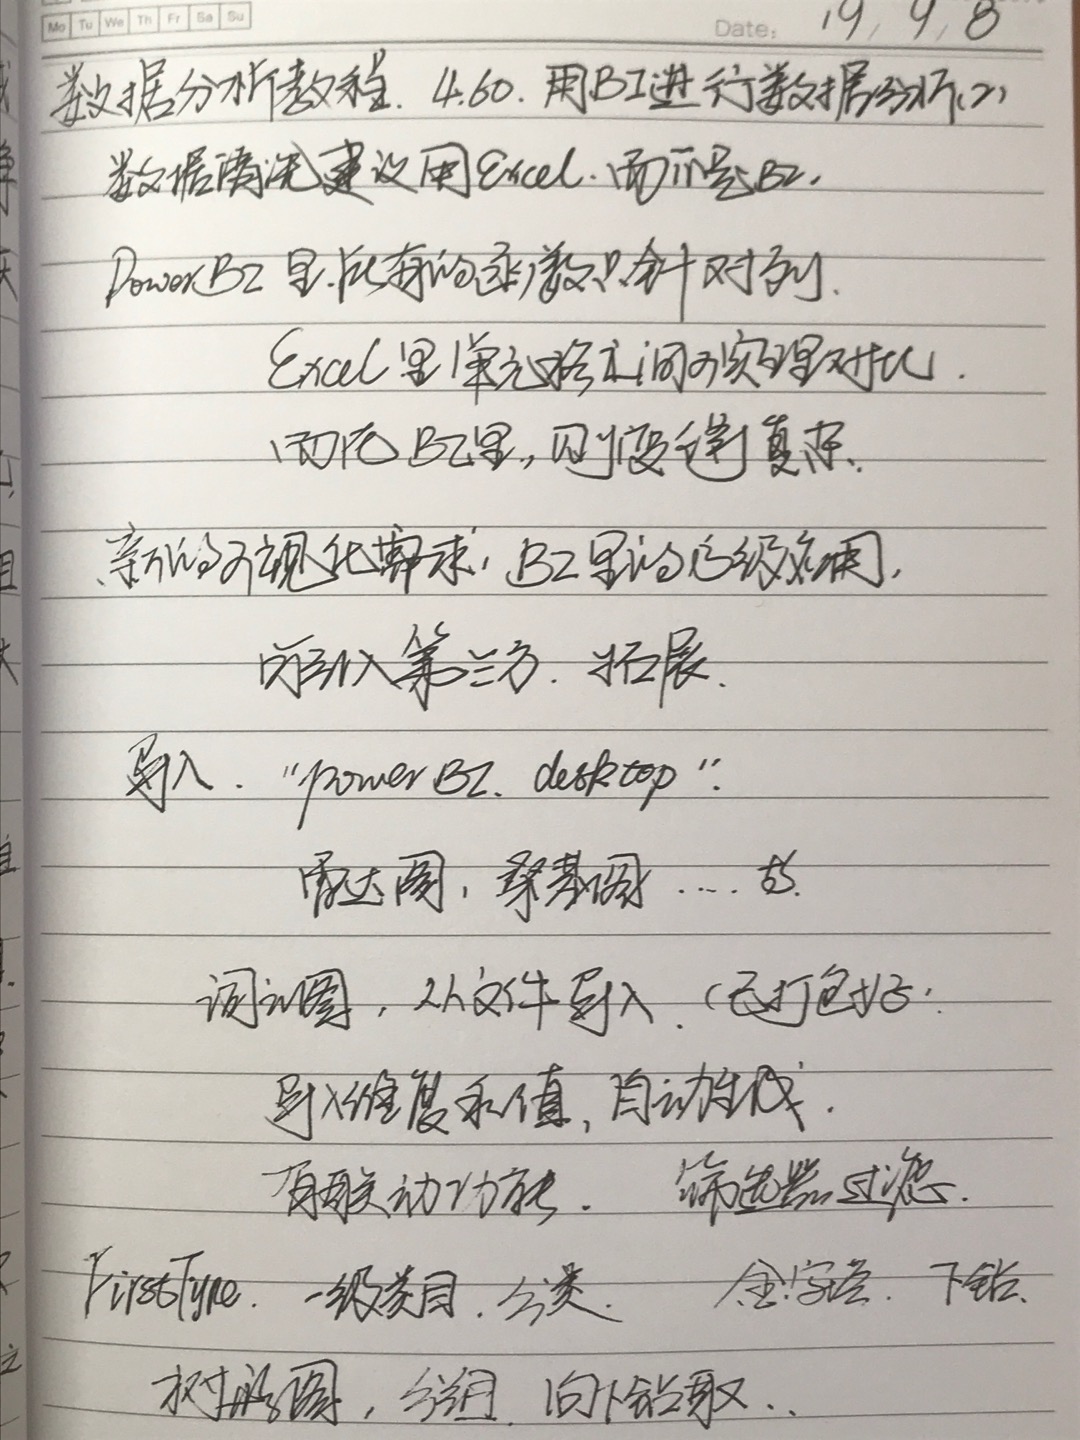 Mo Tu We Th Fr Sa Su
Date: 19/9/8
数据分析教程. 4.60. 用BI进行数据分析(2)
数据清洗建议用Excel. 而不是BI.
PowerBI里.所有的函数只针对列.
Excel里单元格之间可实现对比.
而在BI里, 则变得复杂.
新的可视化需求, BI里的高级应用,
可引入第三方. 拓展.
导入. "powerBI. desktop".
雷达图, 桑基图 .... 等.
词云图, 从文件导入. (已打包好.
导入维度和值, 自动生成.
有联动功能. 筛选器过滤.
FirstType. 一级类目. 分类. 金字塔. 下钻.
树形图, 分组. 向下钻取..